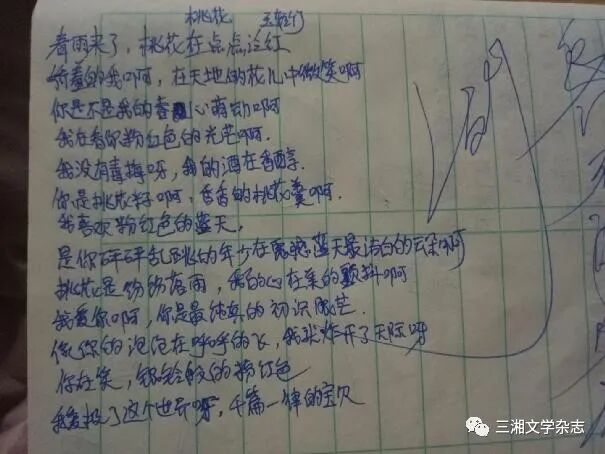 桃花
春雨来了，桃花在点点泣红
娇羞的我啊，在天地的花儿中微笑啊
你是不是我的春心萌动啊
我在看你粉红色的光芒啊，
我没有青梅呀，我的酒在香醇，
你是桃花籽啊，香香的桃花羹啊，
我喜欢粉红色的蓝天，
是你砰砰乱跳的年少在 蓝天最洁白的云朵啊
桃花是纷纷落雨，我的心在柔的颤抖啊
我爱你啊，你是最纯真的初识
像你的泡泡在呼呼的飞，我 炸开了天际呀
你在笑， 的粉红色
我爱极了这个世界呀，千篇一律的宝
三湘文学杂志